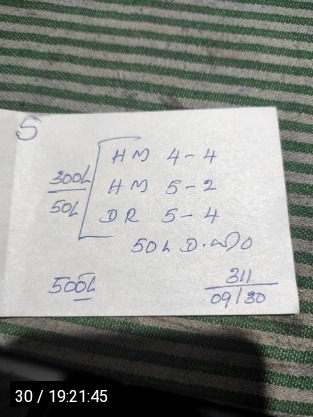 5
HM 4-4
300L HM 5-2
50L DR 5-4
50L D.
500L 311
09/30
30 / 19:21:45